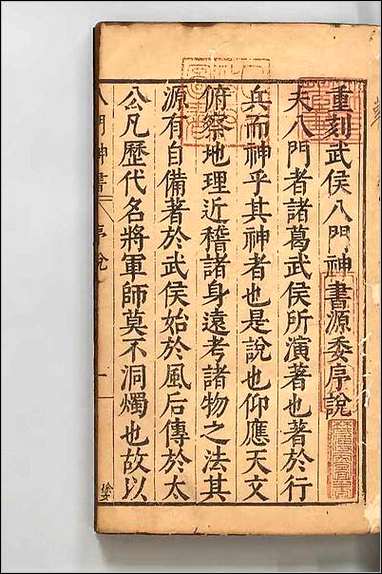 重刻武侯八門神書源委序說
夫八門者諸葛武侯所演著也著於行
兵而神乎其神者也是說也仰應天文
俯察地理近稽諸身遠考諸物之法其
源有自備著於武侯始於風后傳於太
公凡歷代名將軍師莫不洞燭也故以
八門神書
序說
一